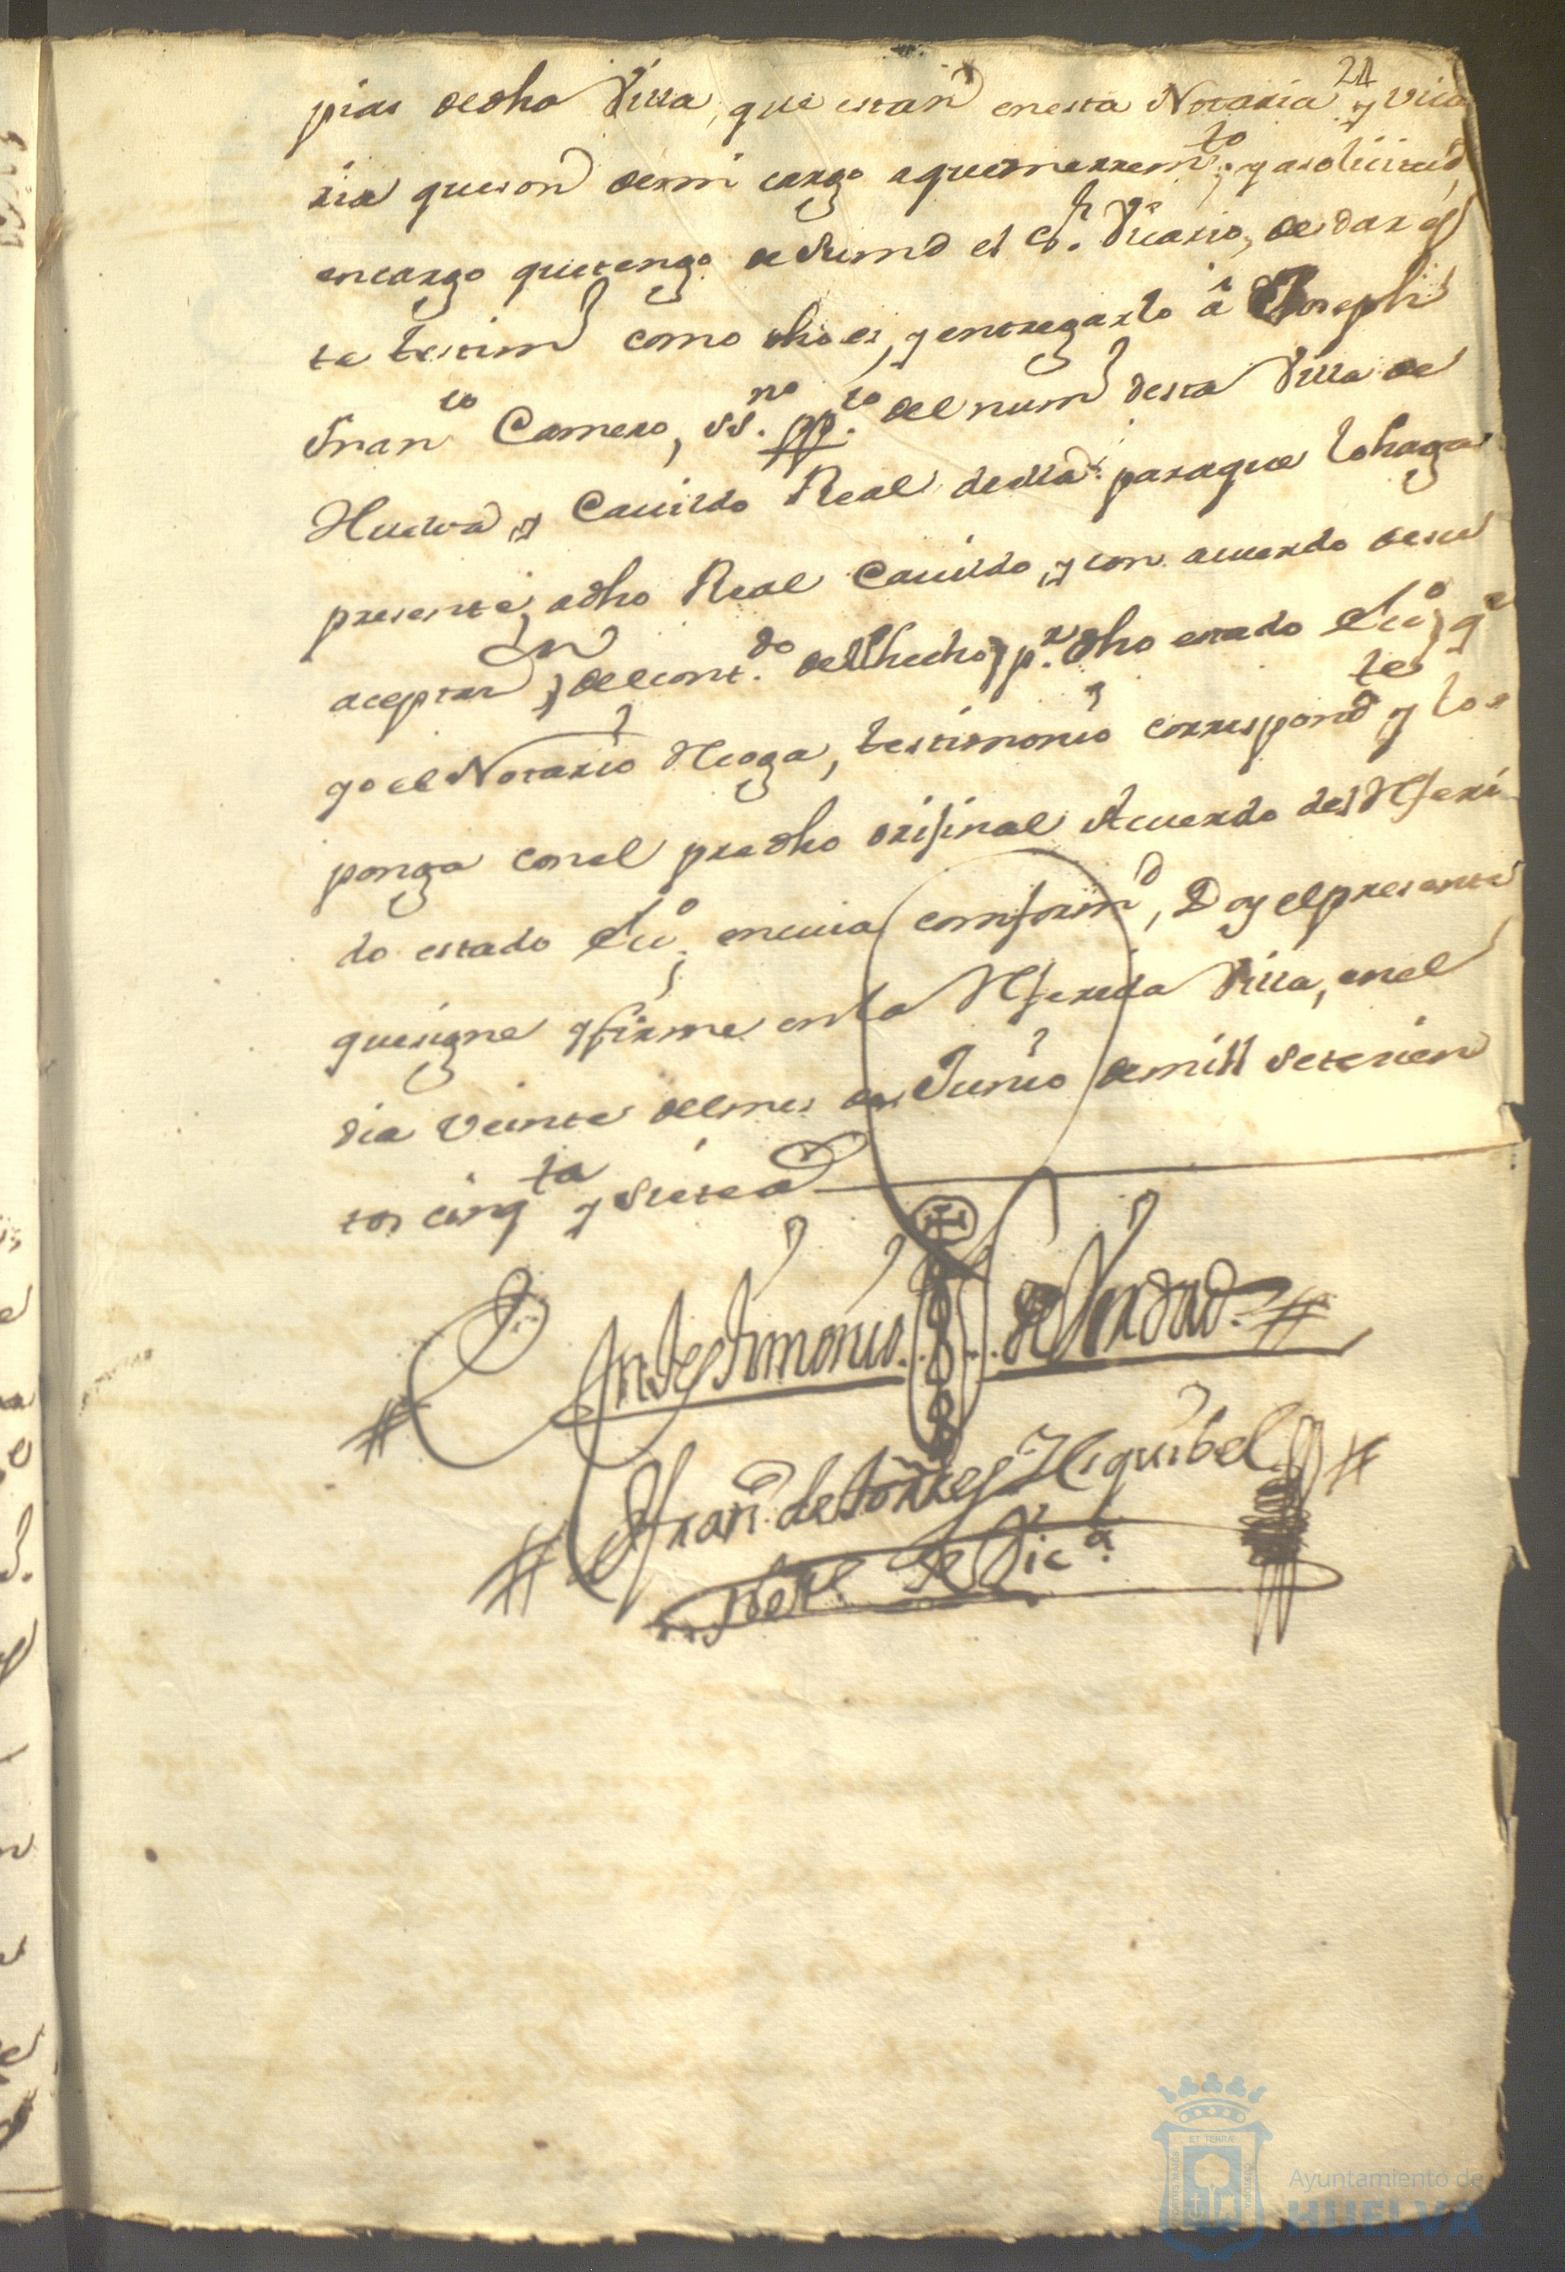 21
pias de dha Villa, que estan en esta Notaria y Vica
ria que son de mi cargo a que me rrem.to y a solicitud
encargo que tengo de su md el S.r Vicario, de dar es
te testim.o como dho es, y entregarlo â Joseph
Fran.co Camero, ss.no pp.co del num.o desta Villa de
Huelva y Cavildo Real de ella para que lo haga
presente, a dho Real Cavildo, y con acuerdo de su
aceptan.on del cont.do del hecho p.r dho estado Ecc.o q.e
go el Notario Recoga, testimonio correspond.te y lo
ponga con el predho orijinal Acuerdo del Referi
do estado Ecc.o; en cuia conformd, Doy el presente
que signe y firme en la Referida Villa, en el
dia Veinte del mes de Junio de mill setecien
tos cinq.ta y siete a
En testimonio de Verdad
Fran.co de Torres Esquibel
Not.o de Vic.a
Ayuntamiento de
HUELVA